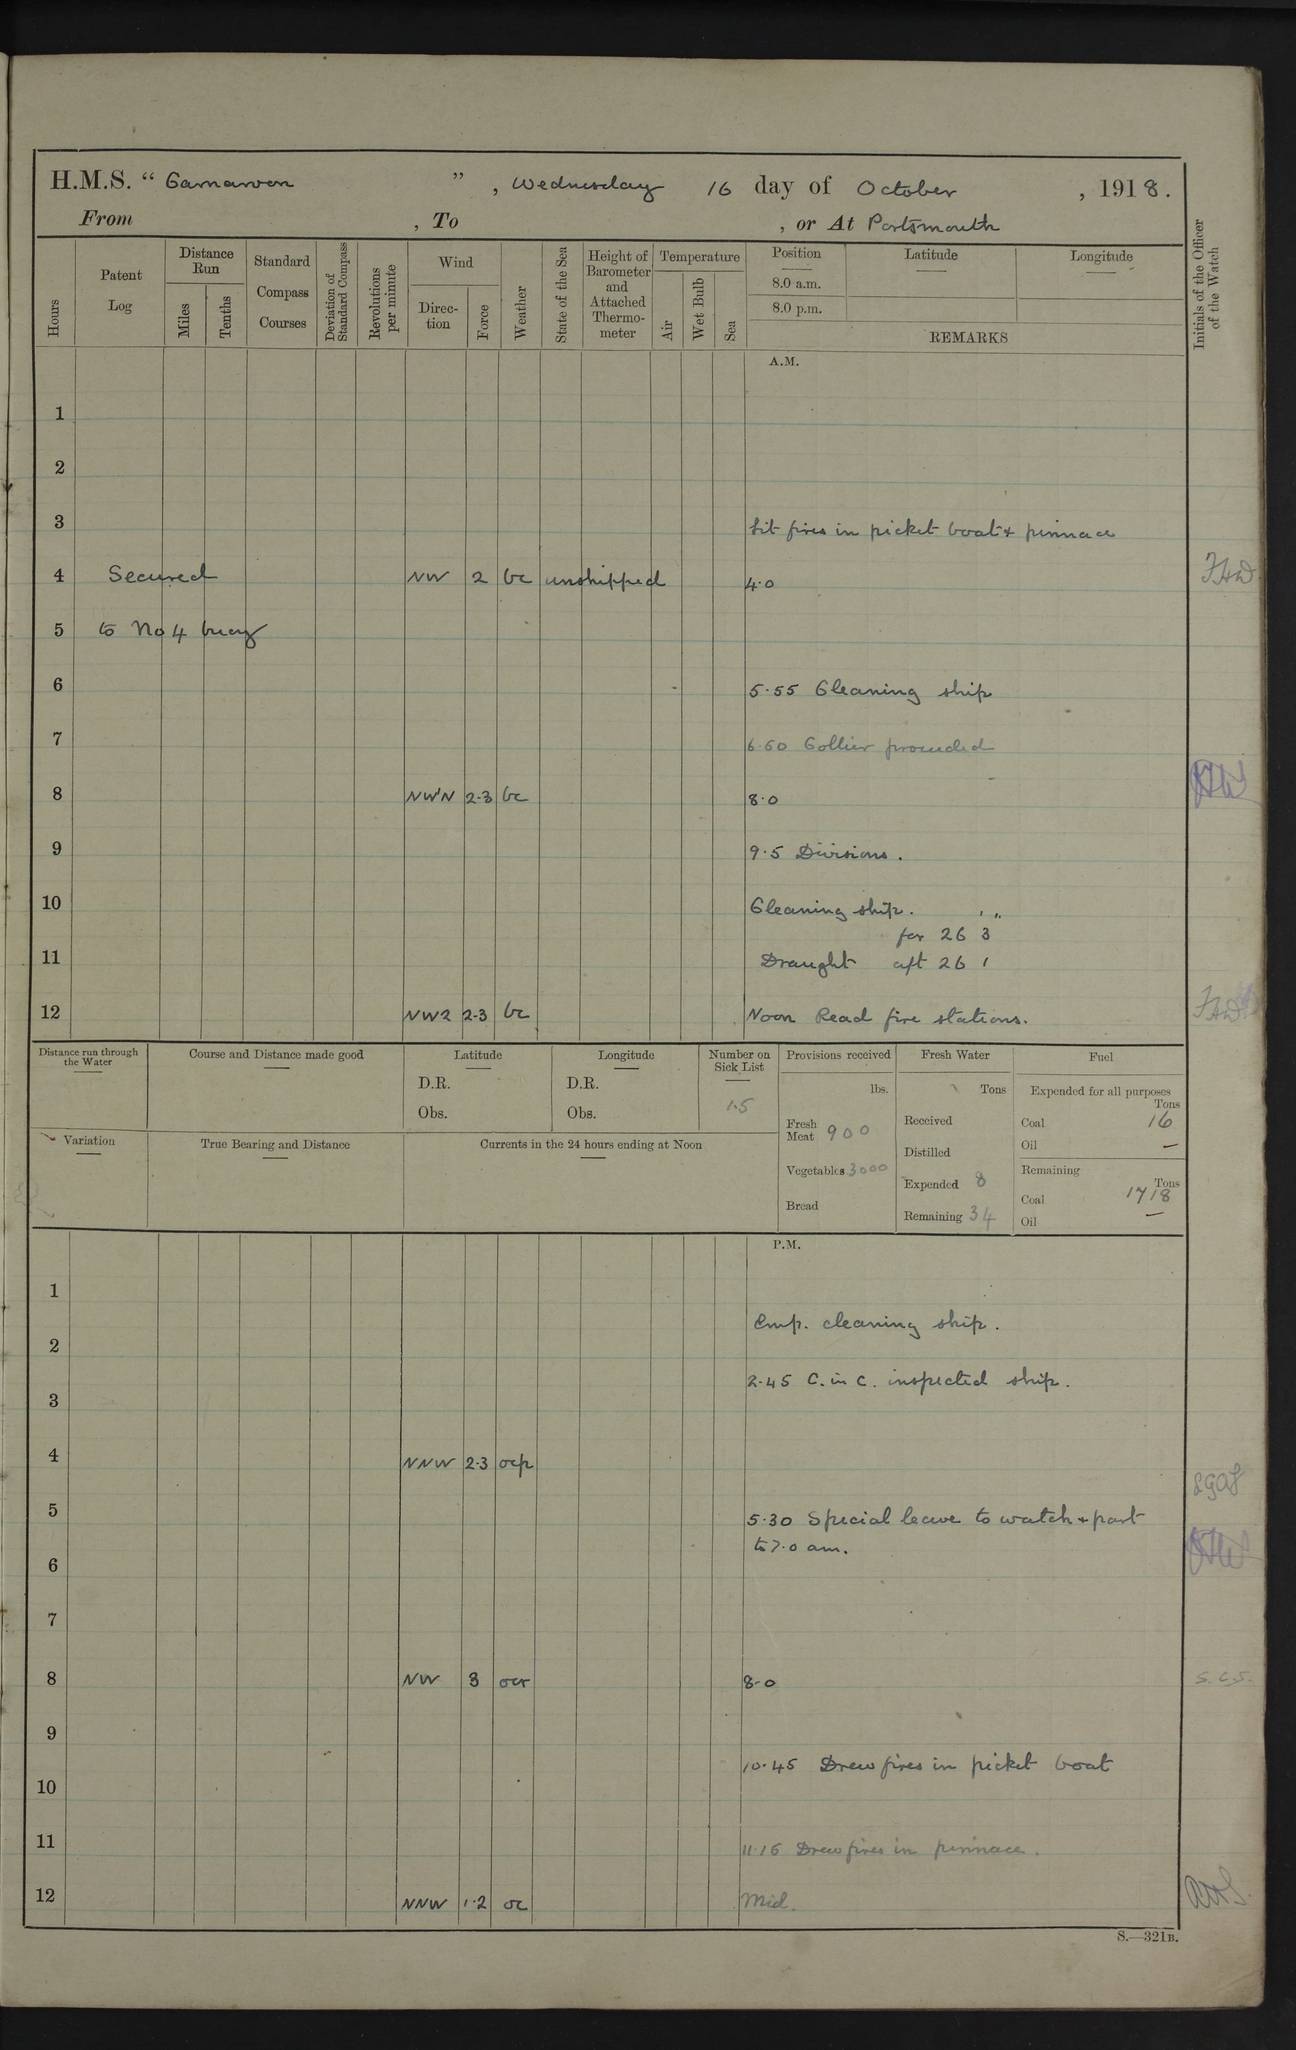 H.M.S. " Carnarvon ", Wednesday 16 day of October , 1918.
From , To , or At Portsmouth
Hours
Patent Log
Distance Run
Miles
Tenths
Standard Compass Courses
Deviation of Standard Compass
Revolutions per minute
Wind
Direction
Force
Weather
State of the Sea
Height of Barometer and Attached Thermometer
Temperature
Air
Wet Bulb
Sea
Position Latitude Longitude
8.0 a.m.
8.0 p.m.
REMARKS
Initials of the Officer of the Watch
A.M.
1
2
3 Lit fires in picket boat & pinnace
4 Secured NW 2 bc unshipped 4.0
5 to No 4 buoy
6 5.55 Cleaning ship
7 6.50 Collier proceeded
8 NW'N 2-3 bc 8.0
9 9.5 Divisions.
10 Cleaning ship. ' "
for 26 3
11 Draught aft 26 1
12 NW 2-3 bc Noon Read fire stations.
Distance run through the Water
Course and Distance made good
Latitude
D.R.
Obs.
Longitude
D.R.
Obs.
Number on Sick List
15
Provisions received
lbs.
Fresh Meat 900
Vegetables 3000
Bread
Fresh Water
Tons
Received
Distilled
Expended 8
Remaining 34
Fuel
Expended for all purposes
Tons
Coal 16
Oil —
Remaining
Tons
Coal 1718
Oil —
Variation
True Bearing and Distance
Currents in the 24 hours ending at Noon
P.M.
1
Emp. cleaning ship.
2
2.45 C. in C. inspected ship.
3
4 NNW 2-3 ocp
5 5.30 Special leave to watch & part
to 7.0 am.
6
7
8 NW 3 ocr 8.0 S.C.S.
9
10.45 Drew fires in picket boat
10
11 11.15 Drew fires in pinnace.
12 NNW 1-2 oc Mid.
S.—321B.